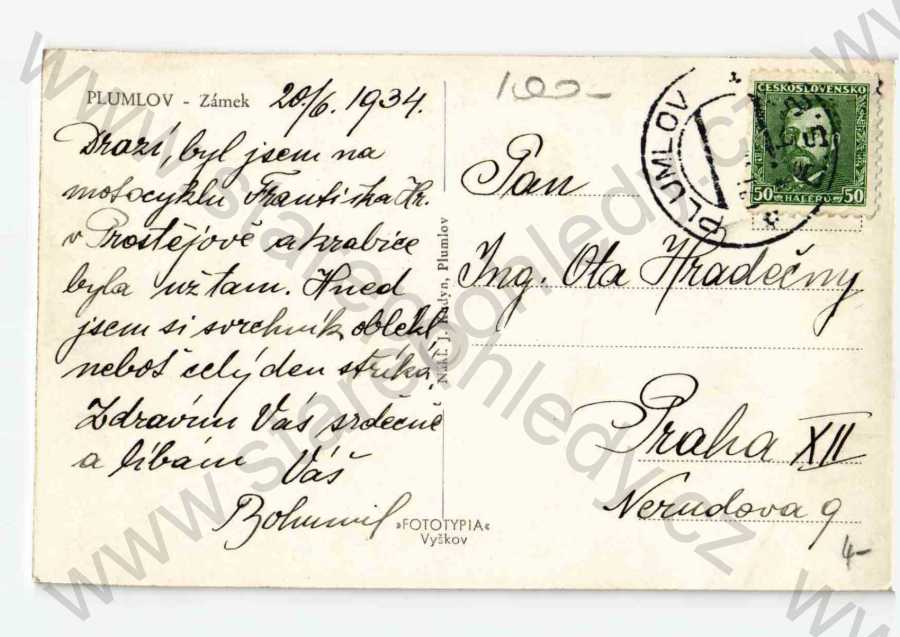 PLUMLOV - Zámek 20/6. 1934.
Drazí, byl jsem na
motocyklu Františka Kr.
v Prostějově a krabice
byla už tam. Hned
jsem si svrchník oblékl,
neboť celý den stříká.
Zdravím Vás srdečně
a líbám Váš
Bohumil
Nákl. J. Hudyn, Plumlov
»FOTOTYPIA«
Vyškov
PLUMLOV
ČESKOSLOVENSKO
50 HALÉŘŮ 50
Pan
Ing. Ota Hradečný
Praha XII
Nerudova 9
4-
www.starepohledy.cz